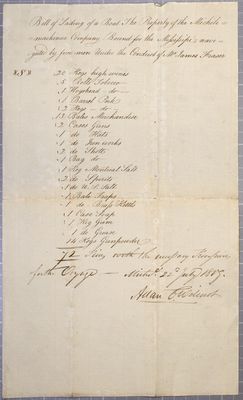 Bill of Lading of a Boat The Property of the Michili-
mackinac Company Bound for the Mississippi & navi-
gated by five men Under the Conduct of Mr James Fraser
20 Kegs high wines
5 Rolls Tobacco
1 Hogshead do
1 Barrel Pork
2 Kegs do
13 Bales Merchandise
2 Cases Guns
1 do Hats
1 do Iron works
2 do Shott
1 Bag do
1 Keg Montreal Salt
2 do Spirits
1 do
1 Bale
1 do Brass Kettles
1 Case Soap
1 Keg Gum
1 do Grease
14 Kegs Gunpowder
72 Pieces with the necessary
for the Voyage — 22d July 1807